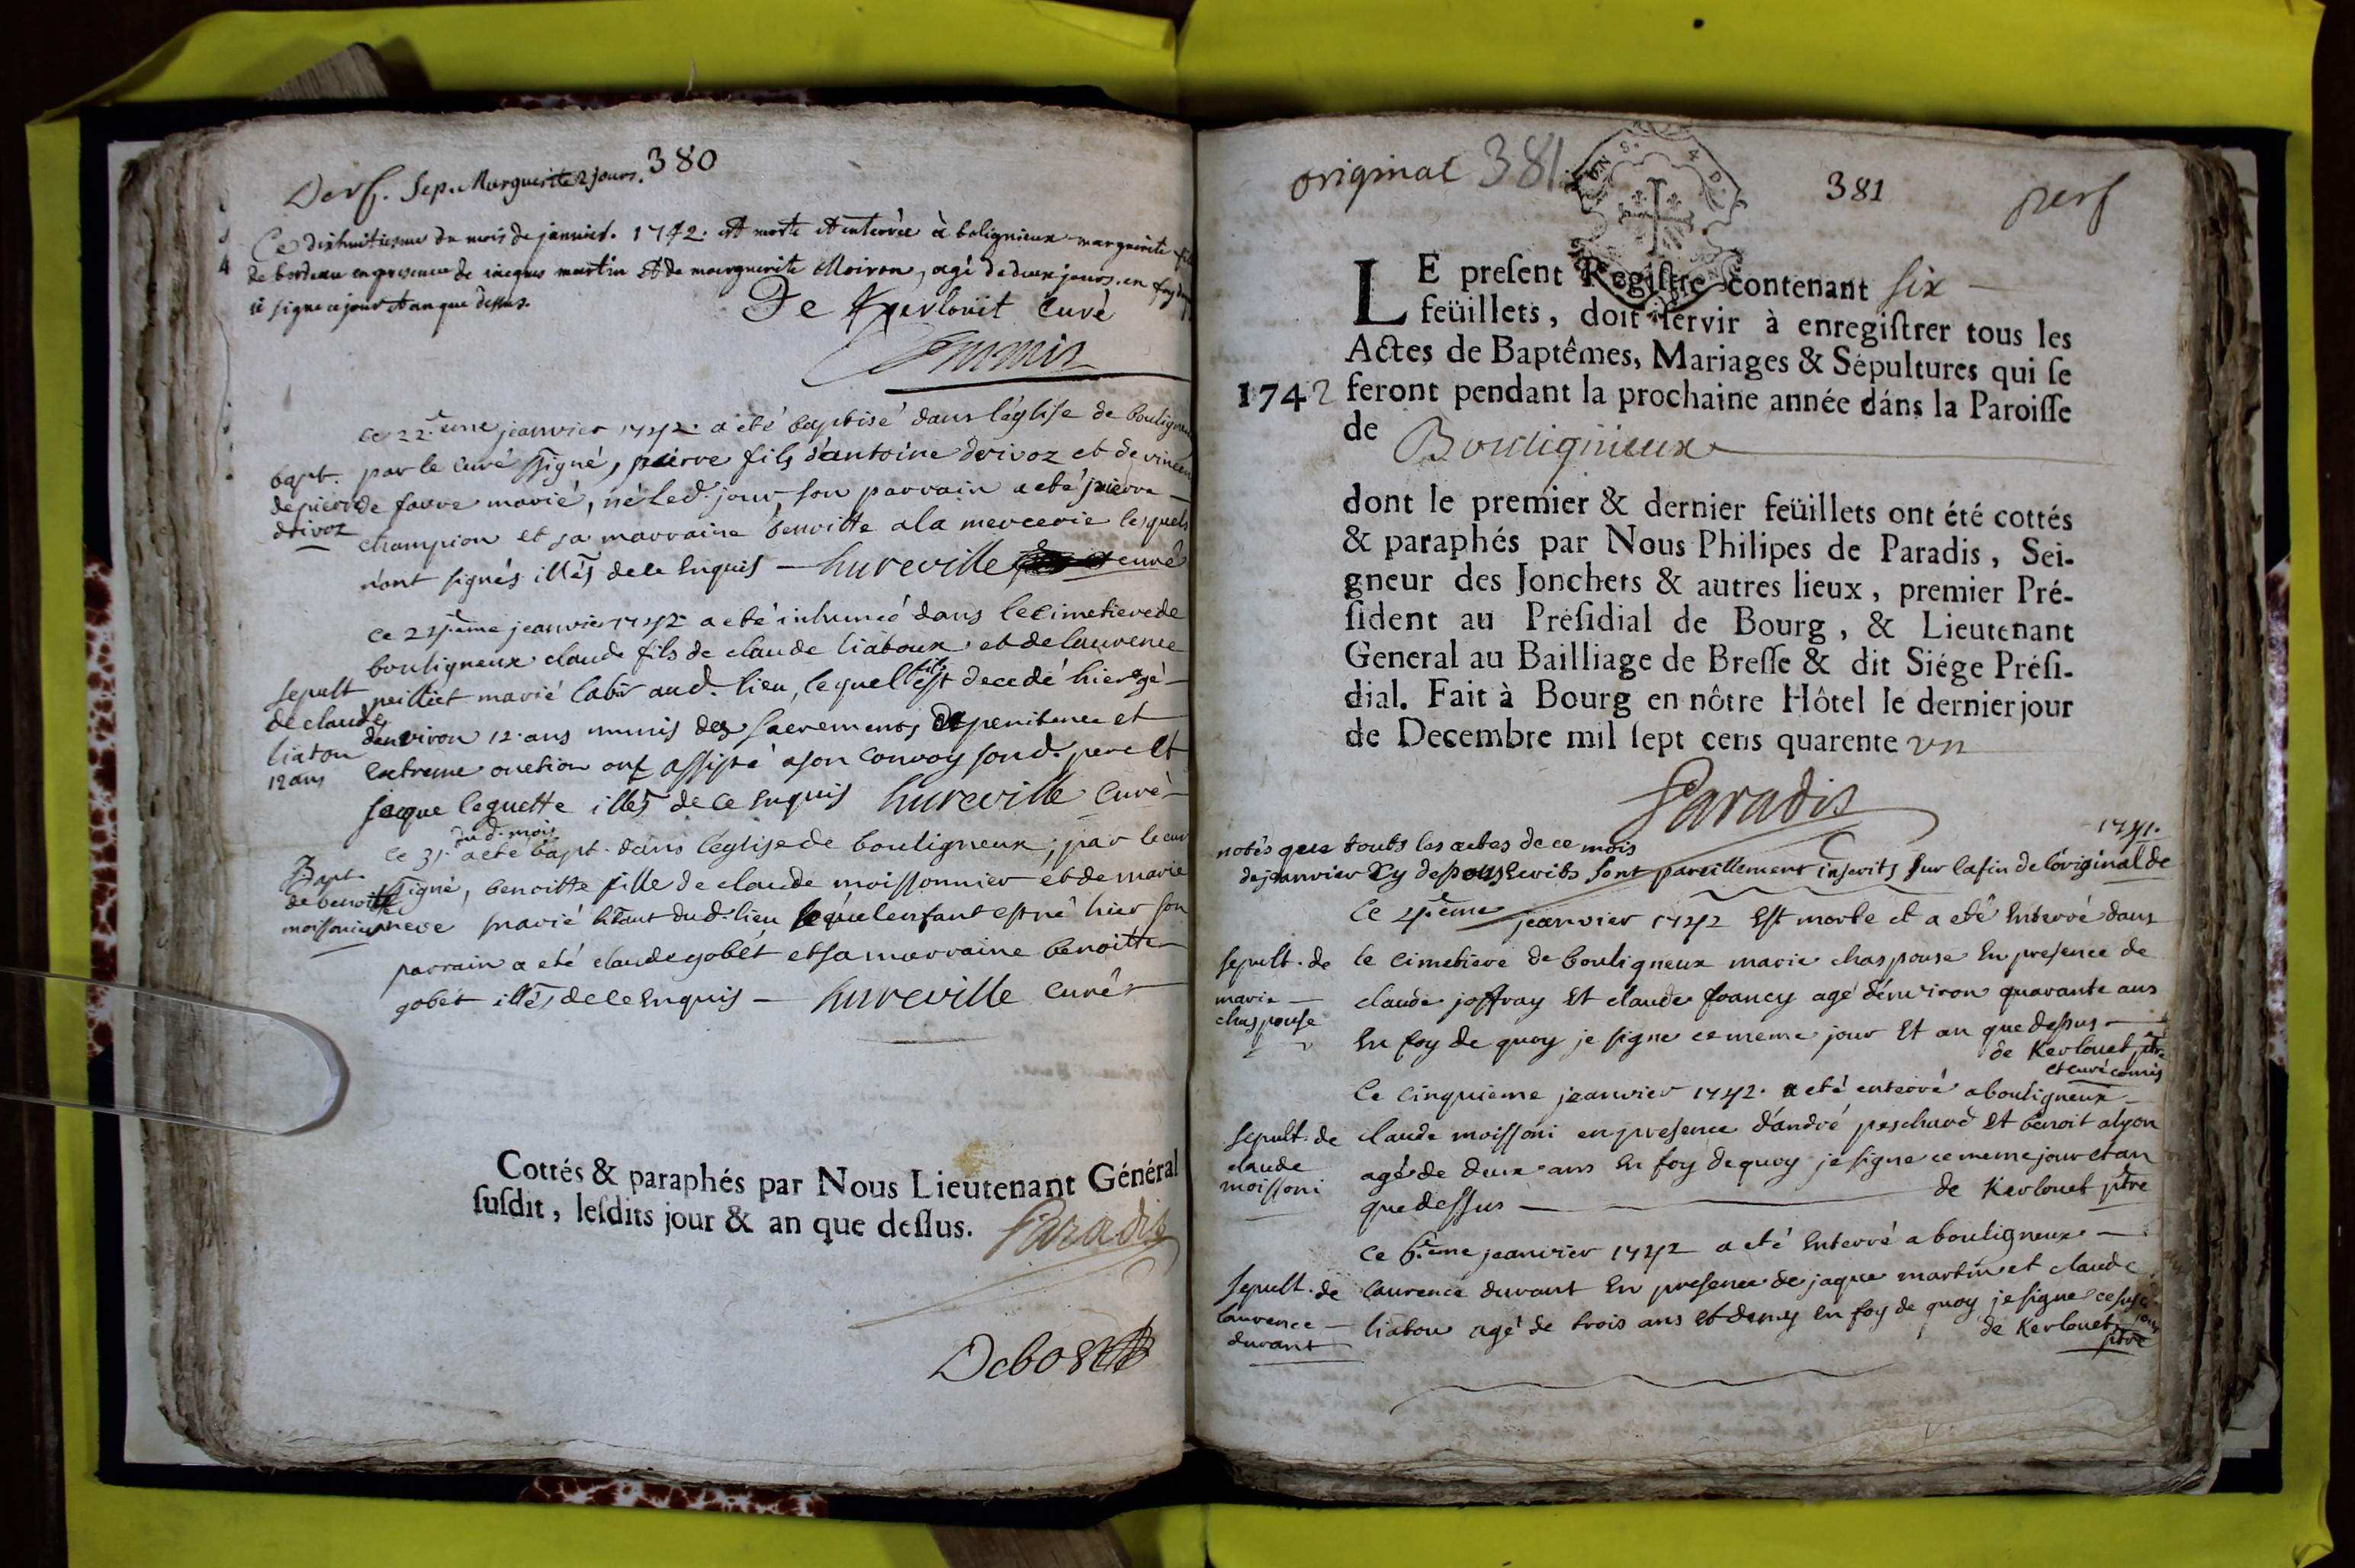 380
Sep. Marguerite 2 jours.
Ce dixhuitiesme du mois de janvier. 1742. est morte et enterrée à bolignieux marguerite
de bordeau en presence de iacques martin et de marguerite Moiron, agé de deux jours. en foy
ié signe ce jour et an que dessus.
De Kperlouit Curé
Commis
ce 22.eme jeanvier 1742. a eté baptisé dans l'église de bouligneux
bapt. par le curé ssigné, pierre fils d'antoine drivoz et de
de pierre de favre marié, né led. jour, son parrain a eté pierre
drivoz champion et sa marraine benoitte a la mercerie lesquels
n'ont signés illés de ce Enquis — hureville curé
ce 24.eme jeanvier 1742 a eté inhumé dans le cimetiere de
bouligneux claude fils de claude liatoux et de laurence
sepult peilliet marié labr aud. lieu, lequel fils est decedé hier agé
de claude d'environ 12 ans munis des sacrements de penitence et
liatou Extreme onction ont assisté a son convoy sond. pere et
12 ans jacque laguette illés de ce Enquis hureville curé
ce 31. dud. mois a eté bapt. dans l'eglise de bouligneux, par le curé
Bapt. ssigné, benoitte fille de claude moissonnier et de marie
de benoitte
moissonier neve marié hitant dud. lieu lequel enfant est né hier son
parrain a eté claude gobet et sa marraine benoitte
gobet illés de ce Enquis — hureville curé
Cottés & paraphés par Nous Lieutenant Général
susdit, lesdits jour & an que dessus. Paradis
Debost
original 381 381
LE present Registre contenant six
feüillets, doit servir à enregistrer tous les
Actes de Baptêmes, Mariages & Sépultures qui se
1742 feront pendant la prochaine année dáns la Paroisse
de Bouligneux
dont le premier & dernier feüillets ont été cottés
& paraphés par Nous Philipes de Paradis, Sei-
gneur des Jonchets & autres lieux, premier Pré-
sident au Présidial de Bourg, & Lieutenant
General au Bailliage de Bresse & dit Siége PrésI-
dial. Fait à Bourg en nôtre Hôtel le dernier jour
de Decembre mil sept cens quarente un
Paradis
notés que touts les actes de ce mois 1741.
de jeanvier Cy dessous Ecrits sont pareillement inscrits sur la fin de l'original de
Ce 4.eme jeanvier 1742 Est morte et a eté Enterré dans
sepult. de le cimetiere de bouligneux marie chaspouse En presence de
marie claude joffray Et claude francy agé d'environ quarante ans
chaspouse En foy de quoy je signe ce meme jour Et an que dessus
de Kerlouet ptre
et curé comis
Ce Cinquieme jeanvier 1742. a eté enterré a bouligneux
sepult. de claude moissoni en presence d'andré peschard Et benoit alyon
claude agé de deux ans En foy de quoy je signe ce meme jour et an
moissoni que dessus — de Kerlouet ptre
Ce 6.eme jeanvier 1742 a eté Enterré a bouligneux
sepult. de laurence durant En presence de jaque martin et claude
laurence liatou agé de trois ans Et demy En foy de quoy je signe ce susd. jour
durant de Kerlouet ptre